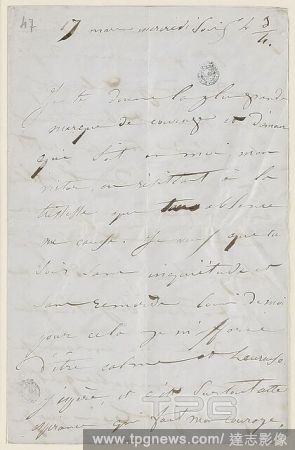 47
17 mars mercredi Soir 4 3/4.
Je te donne la plus grande
marque de courage et d'amour
qui soit en moi mon
en résistant à la
tristesse que ton absence
me cause. Je veux que tu
sois sans inquiétude et
sans remords loin de moi
pour cela je m'efforce
d'être calme et heureuse
j'espère, et c'est surtout cette
espérance qui fait mon courage,
TPG
www.tpgnews.com / 達志影像